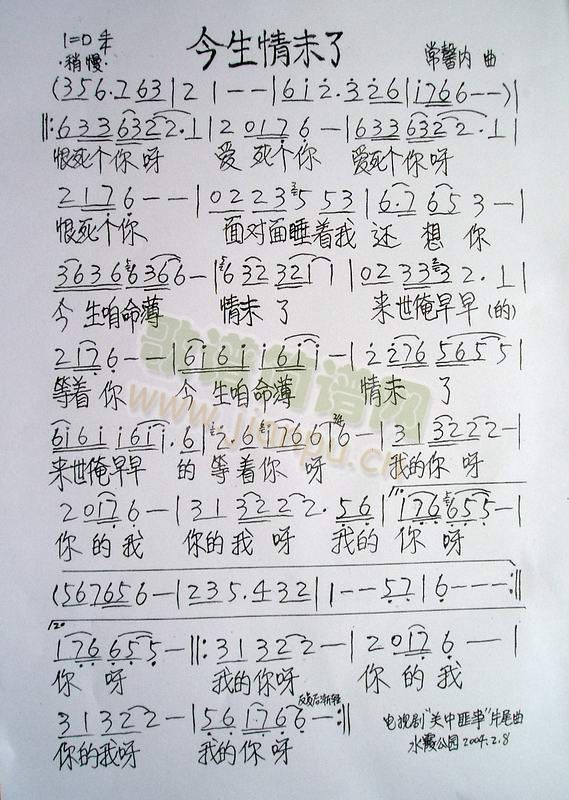 今生情未了
1=D 4/4
稍慢
常馨内 曲
(356.763|2 1--|612.326|1766--)|
‖:63363322.1|20176-|63363322.1|
恨死个你呀 爱死个你 爱死个你呀
2176--|02235 53|6.7653-|
恨死个你 面对面睡着我还想你
36366366-|632 3211|0233332.1|
今生咱命薄 情未了 来世俺早早(的)
2176--|6161 1611-|2276 5655|
等着你 今生咱命薄 情未了
6161 1611.6|2.6176 6 6-|31 3222-|
来世俺早早 的等着你呀 我的你呀
20176-|31 3222.56|176655-|
你的我 你的我呀 我的你呀
(567656-|235.432|1--57|6---:‖
176 655-‖:31 322-|20176--|
你呀 我的你呀 你的我
31 322-|56 1766-:‖
你的我呀 我的你呀
电视剧"关中匪事"片尾曲
水霞公园2004.2.8
歌谱简谱网
www.jianpu.cn